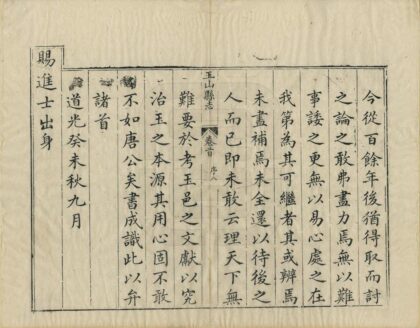 今從百餘年後猶得取而討
之論之敢弗盡力焉無以難
事諉之更無以易心處之在
我第為其可繼者其或辨焉
未盡補焉未全還以待後之
人而已即未敢云理天下無
玉山縣志
卷首
序
難要於考玉邑之文獻以究
治玉之本源其用心固不敢
不如唐公矣書成識此以弁
諸首
道光癸未秋九月
賜進士出身